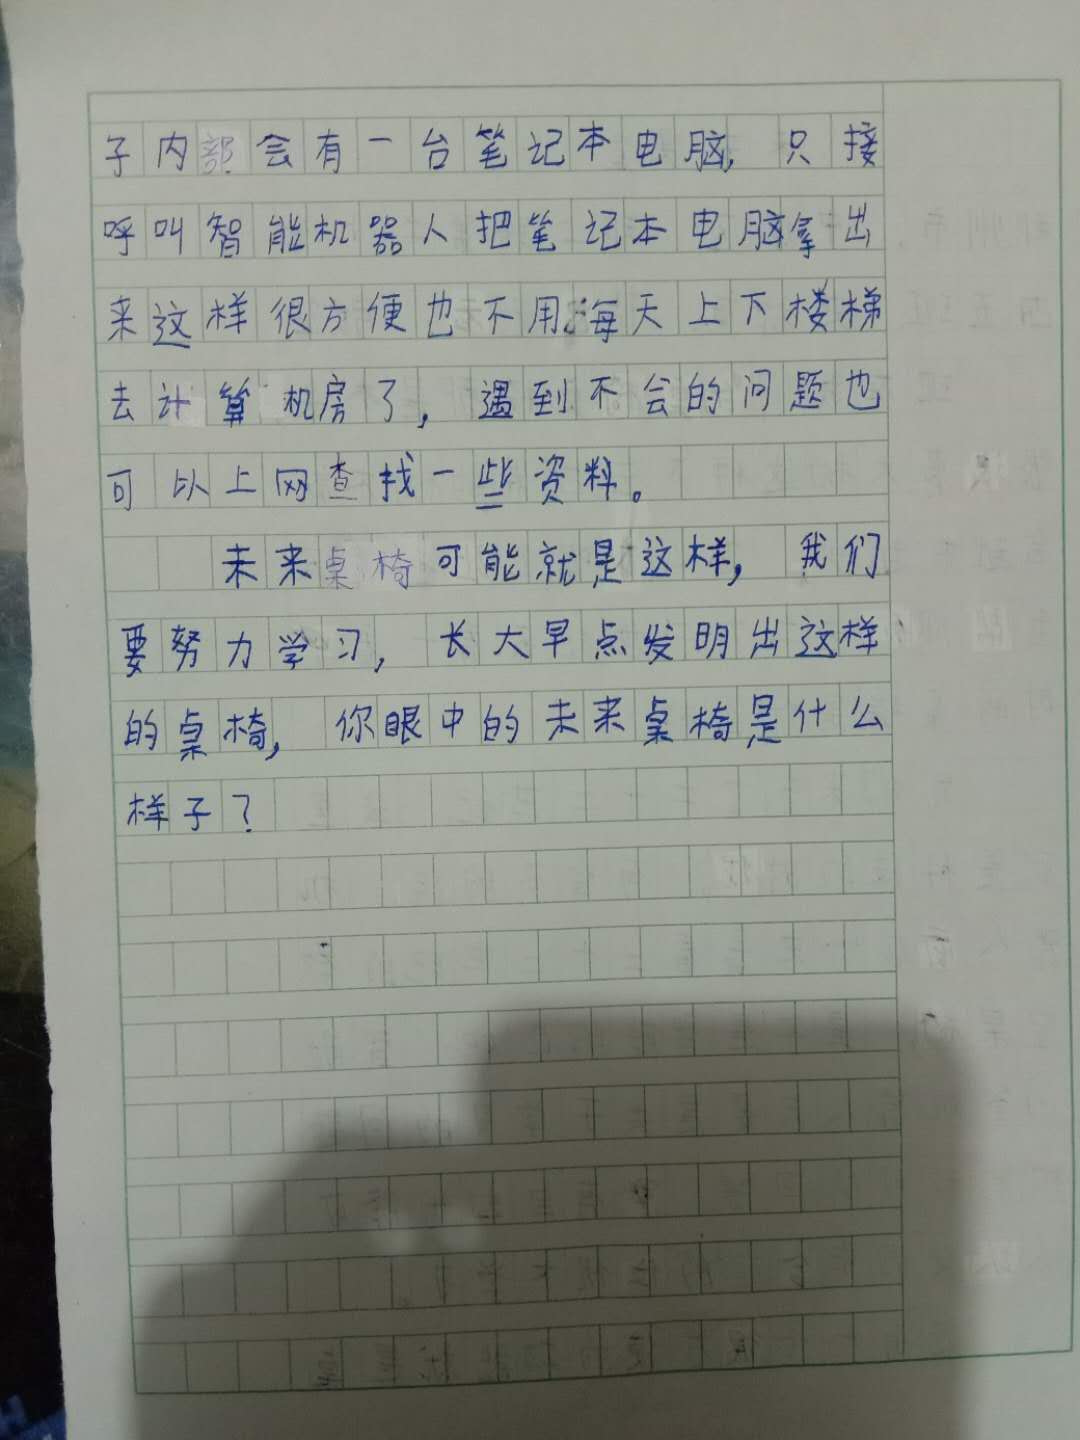 子内部会有一台笔记本电脑，只接
呼叫智能机器人把笔记本电脑拿出
来这样很方便也不用每天上下楼梯
去计算机房了，遇到不会的问题也
可以上网查找一些资料。
未来桌椅可能就是这样，我们
要努力学习，长大早点发明出这样
的桌椅，你眼中的未来桌椅是什么
样子？